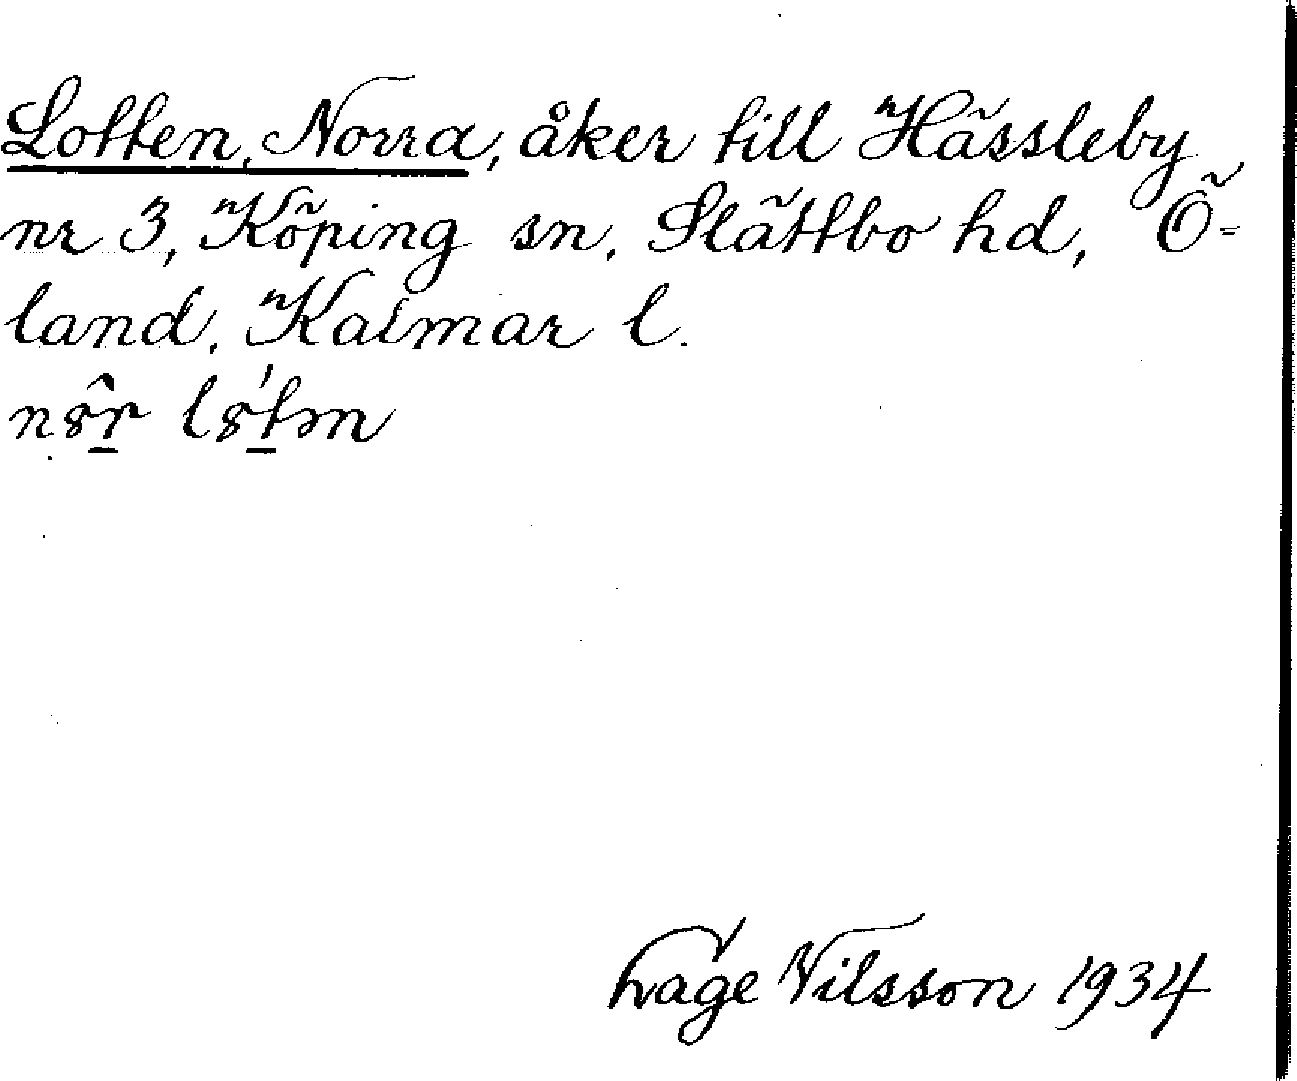 Lotten, Norra, åker till Hässleby
nr 3, Köping sn, Slättbo hd, Ö-
land, Kalmar l.
Hage Nilsson 1934